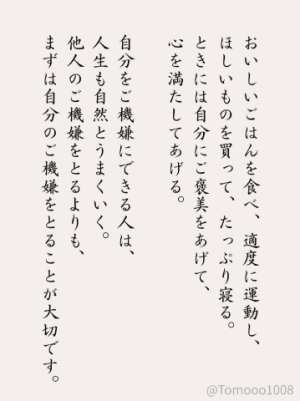 おいしいごはんを食べ、適度に運動し、
ほしいものを買って、たっぷり寝る。
ときには自分にご褒美をあげて、
心を満たしてあげる。
自分をご機嫌にできる人は、
人生も自然とうまくいく。
他人のご機嫌をとるよりも、
まずは自分のご機嫌をとることが大切です。
@Tomooo1008